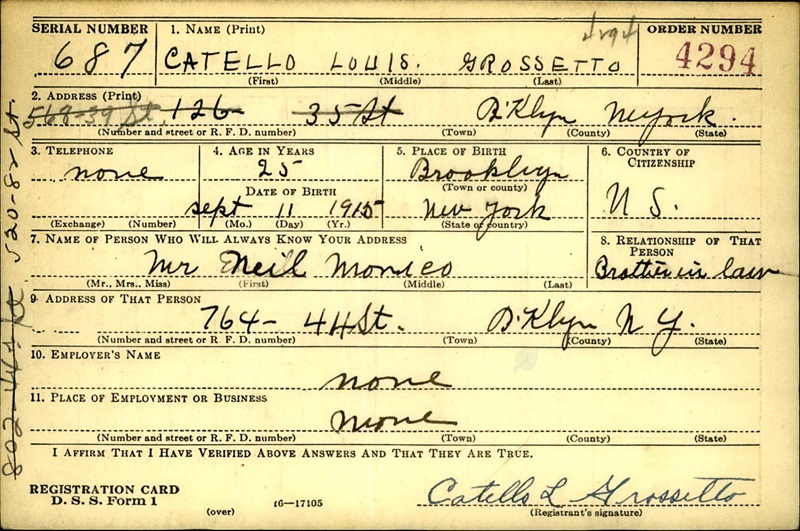 SERIAL NUMBER
687
1. NAME (Print)
CATELLO LOUIS. GROSSETTO
(First) (Middle) (Last)
4294
ORDER NUMBER
4294
2. ADDRESS (Print)
568-39 St. 126- 35 St B'Klyn New York.
(Number and street or R. F. D. number) (Town) (County) (State)
3. TELEPHONE
none
(Exchange) (Number)
4. AGE IN YEARS
25
DATE OF BIRTH
Sept 11 1915
(Mo.) (Day) (Yr.)
5. PLACE OF BIRTH
Brooklyn
(Town or county)
New York
(State or country)
6. COUNTRY OF
CITIZENSHIP
U S.
7. NAME OF PERSON WHO WILL ALWAYS KNOW YOUR ADDRESS
Mr Neil Monico
(Mr., Mrs., Miss) (First) (Middle) (Last)
8. RELATIONSHIP OF THAT
PERSON
Brother in law
9. ADDRESS OF THAT PERSON
764- 44 St. B'Klyn N Y.
(Number and street or R. F. D. number) (Town) (County) (State)
10. EMPLOYER'S NAME
none
11. PLACE OF EMPLOYMENT OR BUSINESS
none
(Number and street or R. F. D. number) (Town) (County) (State)
I AFFIRM THAT I HAVE VERIFIED ABOVE ANSWERS AND THAT THEY ARE TRUE.
REGISTRATION CARD
D. S. S. Form 1
(over)
16—17105
Catello L Grossetto
(Registrant's signature)
802-44 St 520-82 St.